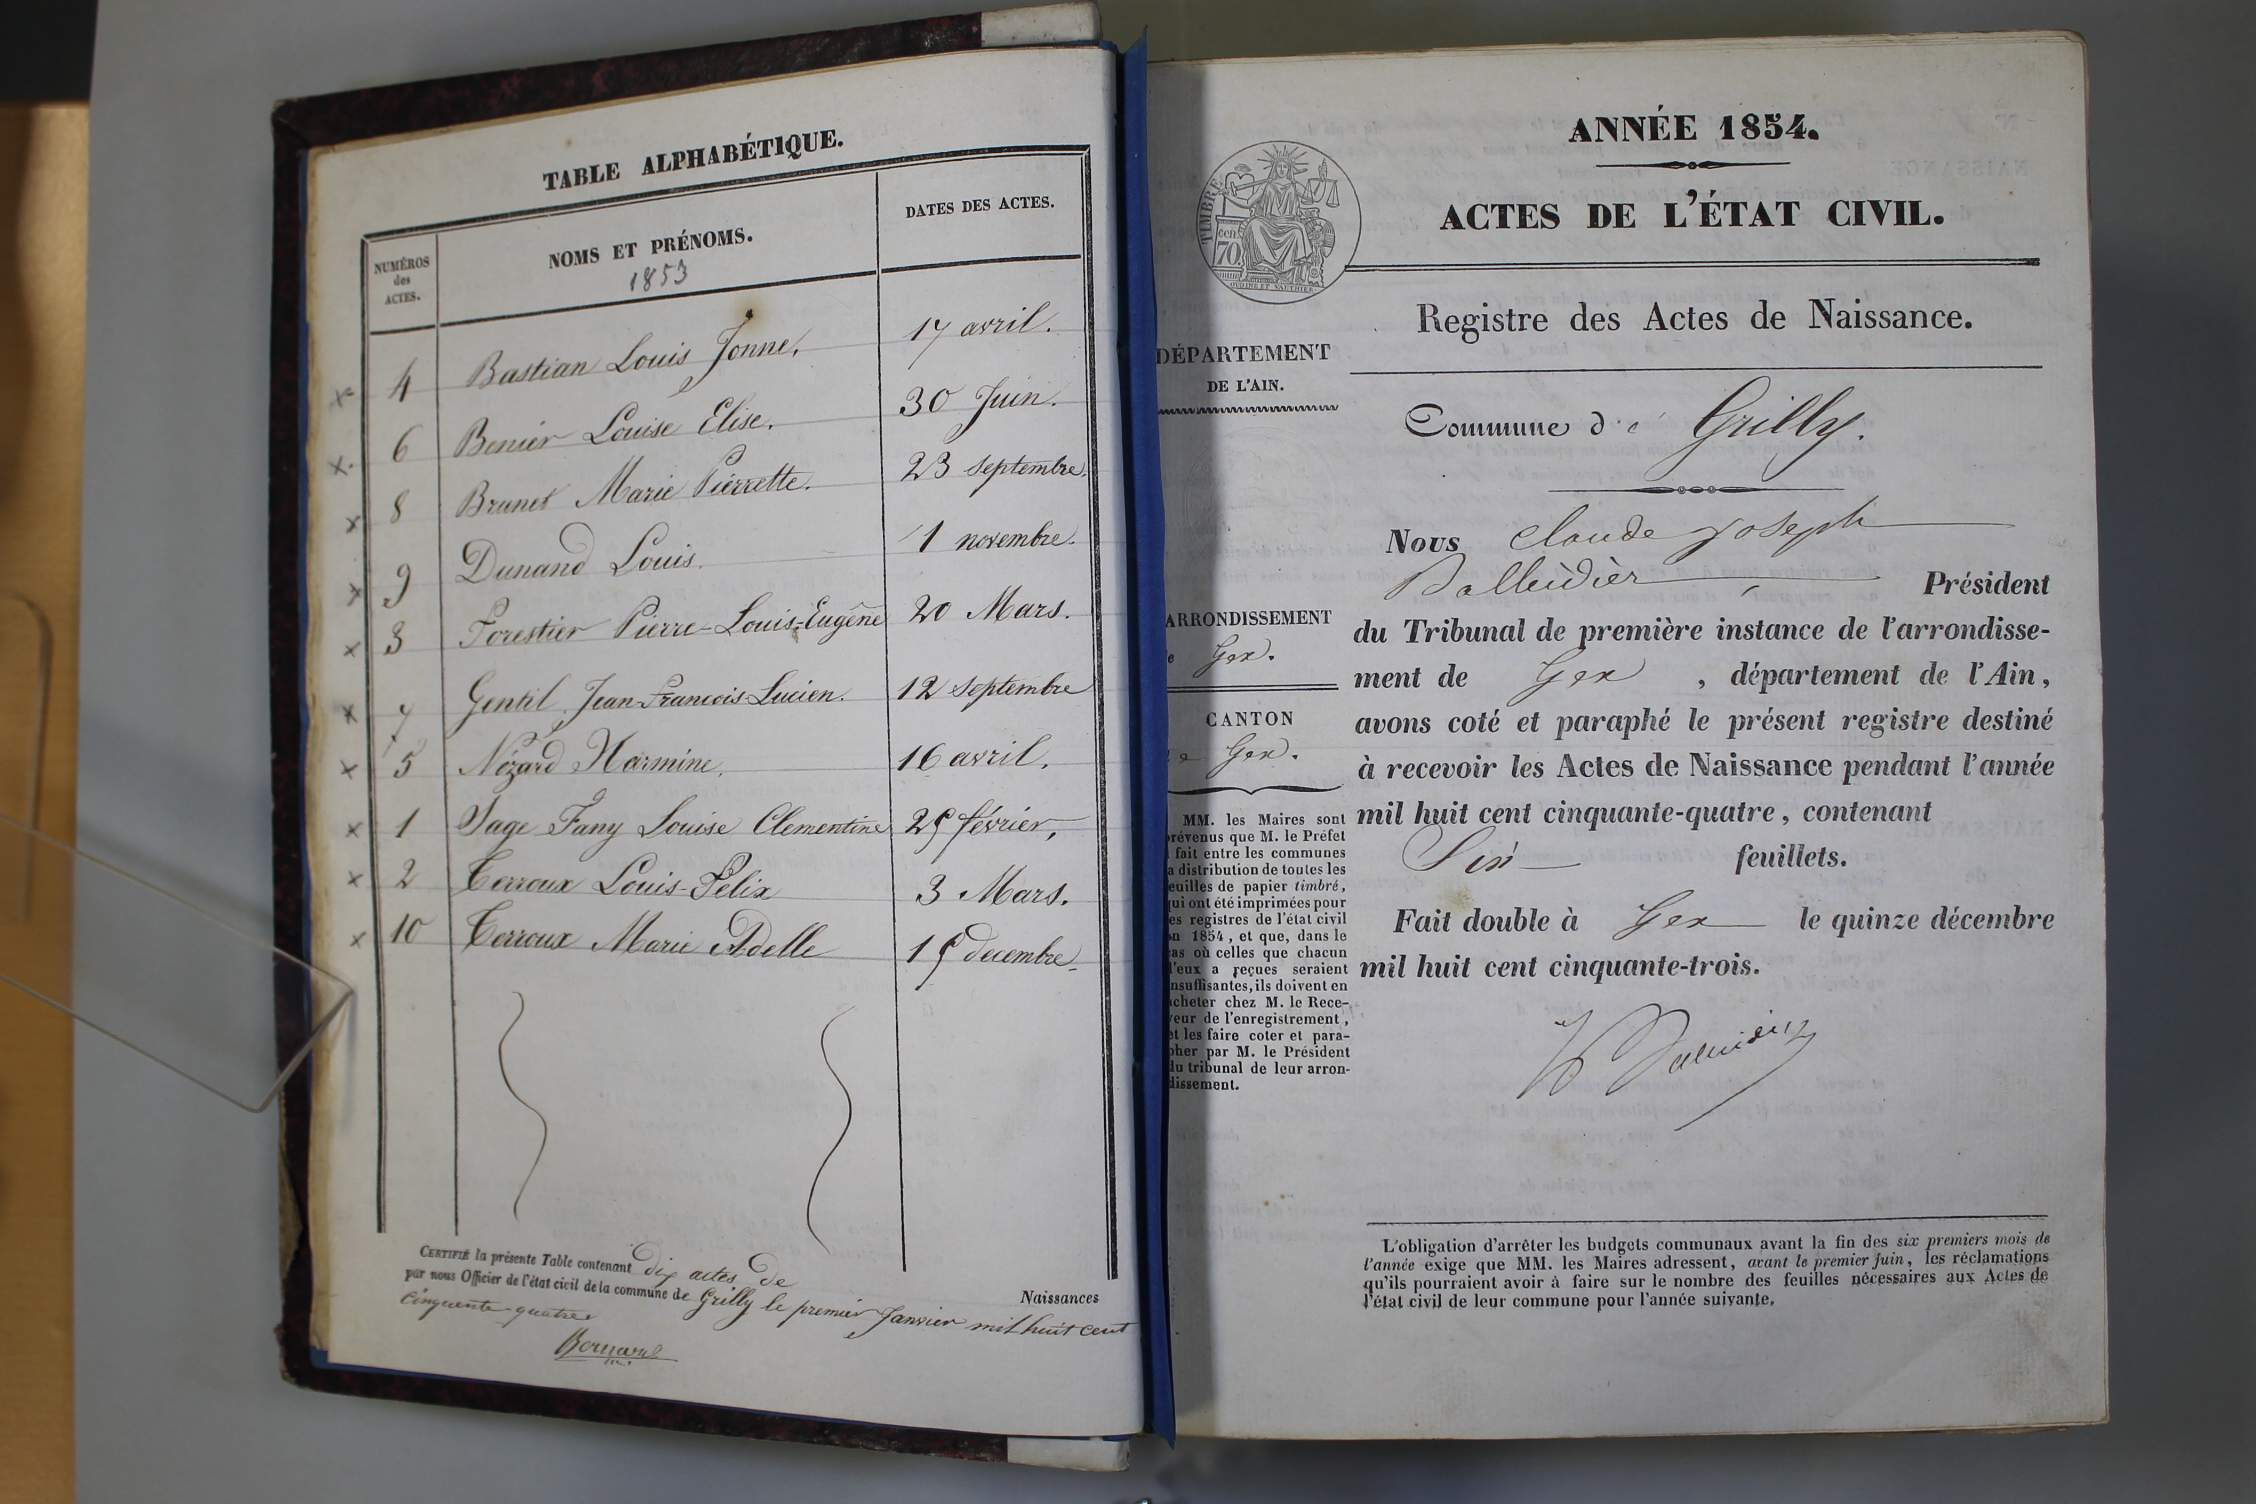 TABLE ALPHABÉTIQUE.
NUMÉROS des ACTES.
NOMS ET PRÉNOMS.
1853
DATES DES ACTES.
x 4 Bastian Louis Jonne, 17 avril.
x 6 Benier Louise Elise. 30 Juin.
x 8 Brunet Marie Pierrette. 23 septembre.
x 9 Dunand Louis. 1 novembre.
x 3 Forestier Pierre-Louis-Eugêne 20 Mars.
x 7 Gentil Jean-Francois-Lucien. 12 septembre
x 5 Nozard Harmine. 16 avril.
x 1 Sage Fany Louise Clementine 25 février,
x 2 Terroux Louis-Felix 3 Mars.
x 10 Terroux Marie Adelle 15 decembre
CERTIFIÉ la présente Table contenant dix actes de
par nous Officier de l'état civil de la commune de Grilly le premier Janvier mil huit cent
cinquante-quatre
Naissances
ANNÉE 1854.
ACTES DE L'ÉTAT CIVIL.
TIMBRE
cen
70
OUDINE ET SAUTHIER
Registre des Actes de Naissance.
DÉPARTEMENT
DE L'AIN.
Commune de Grilly.
Nous Claude Joseph
Balleidier Président
du Tribunal de première instance de l'arrondisse-
ment de Gex, département de l'Ain,
avons coté et paraphé le présent registre destiné
à recevoir les Actes de Naissance pendant l'année
mil huit cent cinquante-quatre, contenant
Six feuillets.
Fait double à Gex le quinze décembre
mil huit cent cinquante-trois.
ARRONDISSEMENT
e Gex.
CANTON
e Gex.
MM. les Maires sont
révenus que M. le Préfet
fait entre les communes
a distribution de toutes les
euilles de papier timbré,
ui ont été imprimées pour
es registres de l'état civil
n 1854, et que, dans le
as où celles que chacun
'eux a reçues seraient
nsuffisantes, ils doivent en
cheter chez M. le Rece-
eur de l'enregistrement,
t les faire coter et para-
her par M. le Président
u tribunal de leur arron-
dissement.
L'obligation d'arrêter les budgets communaux avant la fin des six premiers mois de
l'année exige que MM. les Maires adressent, avant le premier juin, les réclamations
qu'ils pourraient avoir à faire sur le nombre des feuilles nécessaires aux Actes de
l'état civil de leur commune pour l'année suivante.